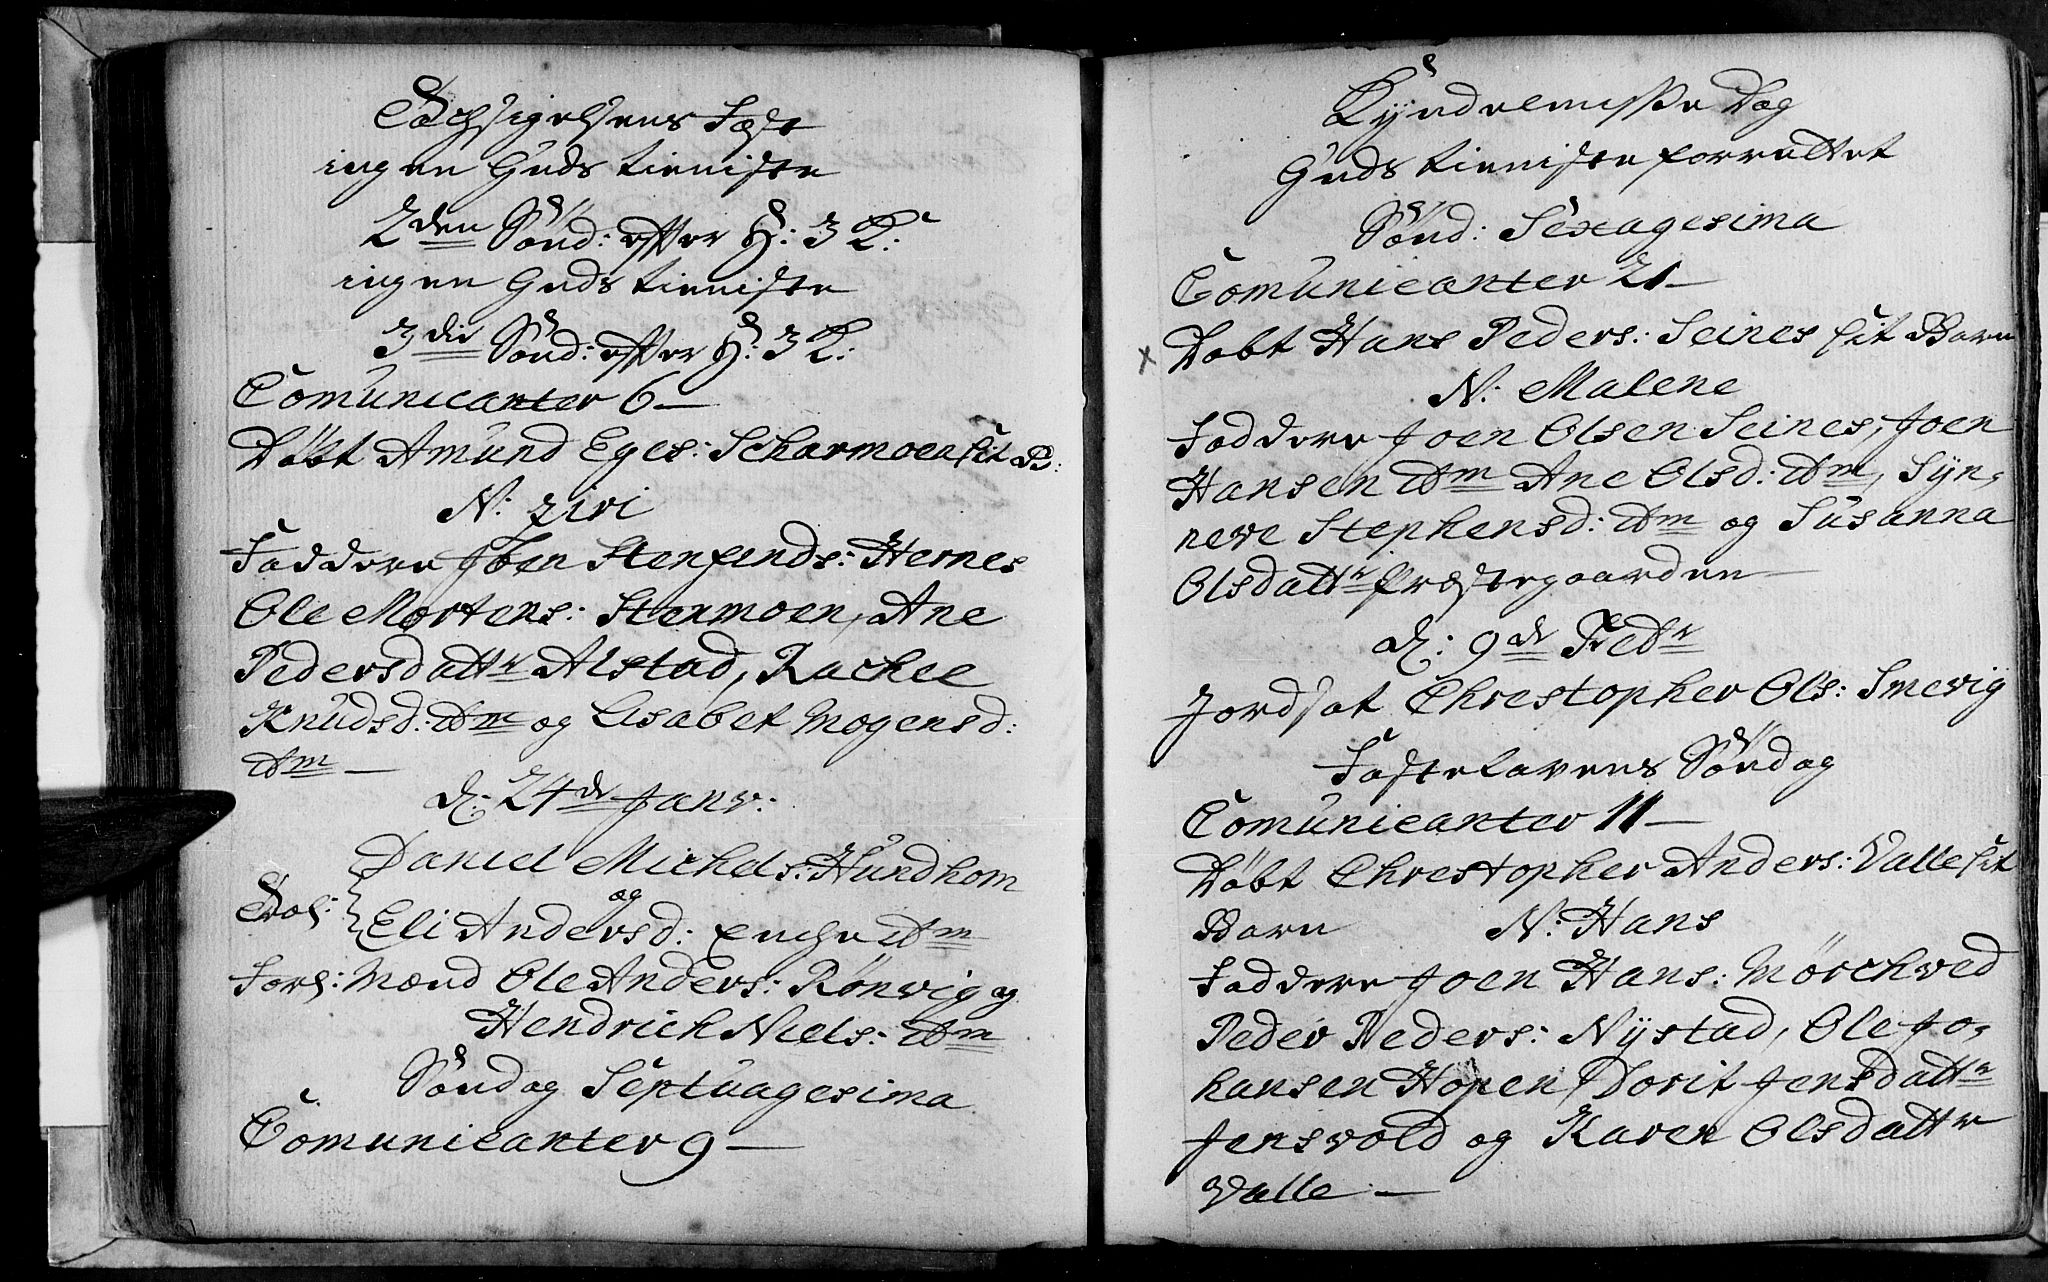 ingen Guds tieniste
2den Sønd: effter H: 3 K:
ingen Guds tieniste
3die Sønd: effter H: 3 K:
Comunicanter 6 —
Døbt Amund Eges: Scharmoen sit B:
N: ziri
Faddere Joen Stenfinds: Hernes
Ole Mortens: Stormoen, Ane
Pedersdattr Alstad, Rachel
Knudsd: Dm og Lisabet Mogensd:
Dm —
d: 24de Janv:
Daniel Michels: Hundhom
og
Trol:
Eli Andersd: Enche Dm
Forl: Mænd Ole Anders: Rønvig og
Hendrich Niels: Dm
Søndag Septuagesima
Comunicanter 9 —
Kyndelmisse Dag
Guds tieniste forrettet
Sønd: Sexagesima
Comunicanter 21 —
x Døbt Hans Peders: Seines sit Barn
N: Malene
Faddere Joen Olsen Seines, Joen
Hansen Dm Ane Olsd: Dm, Syn,
neve Stephensd: Dm og Susanna
Olsdattr Præstegaarden —
d: 9de Febr
Jordsat Chrestopher Ols: Smevig
Fastelavens Søndag
Comunicanter 11 —
Døbt Chrestopher Anders: Valle sit
Barn N: Hans
Faddere Joen Hans: Mørchved
Peder Peders: Nystad, Ole Jo,
hansen Hopen, Dorit Jensdattr
Jensvold og Karen Olsdattr
Valle. —